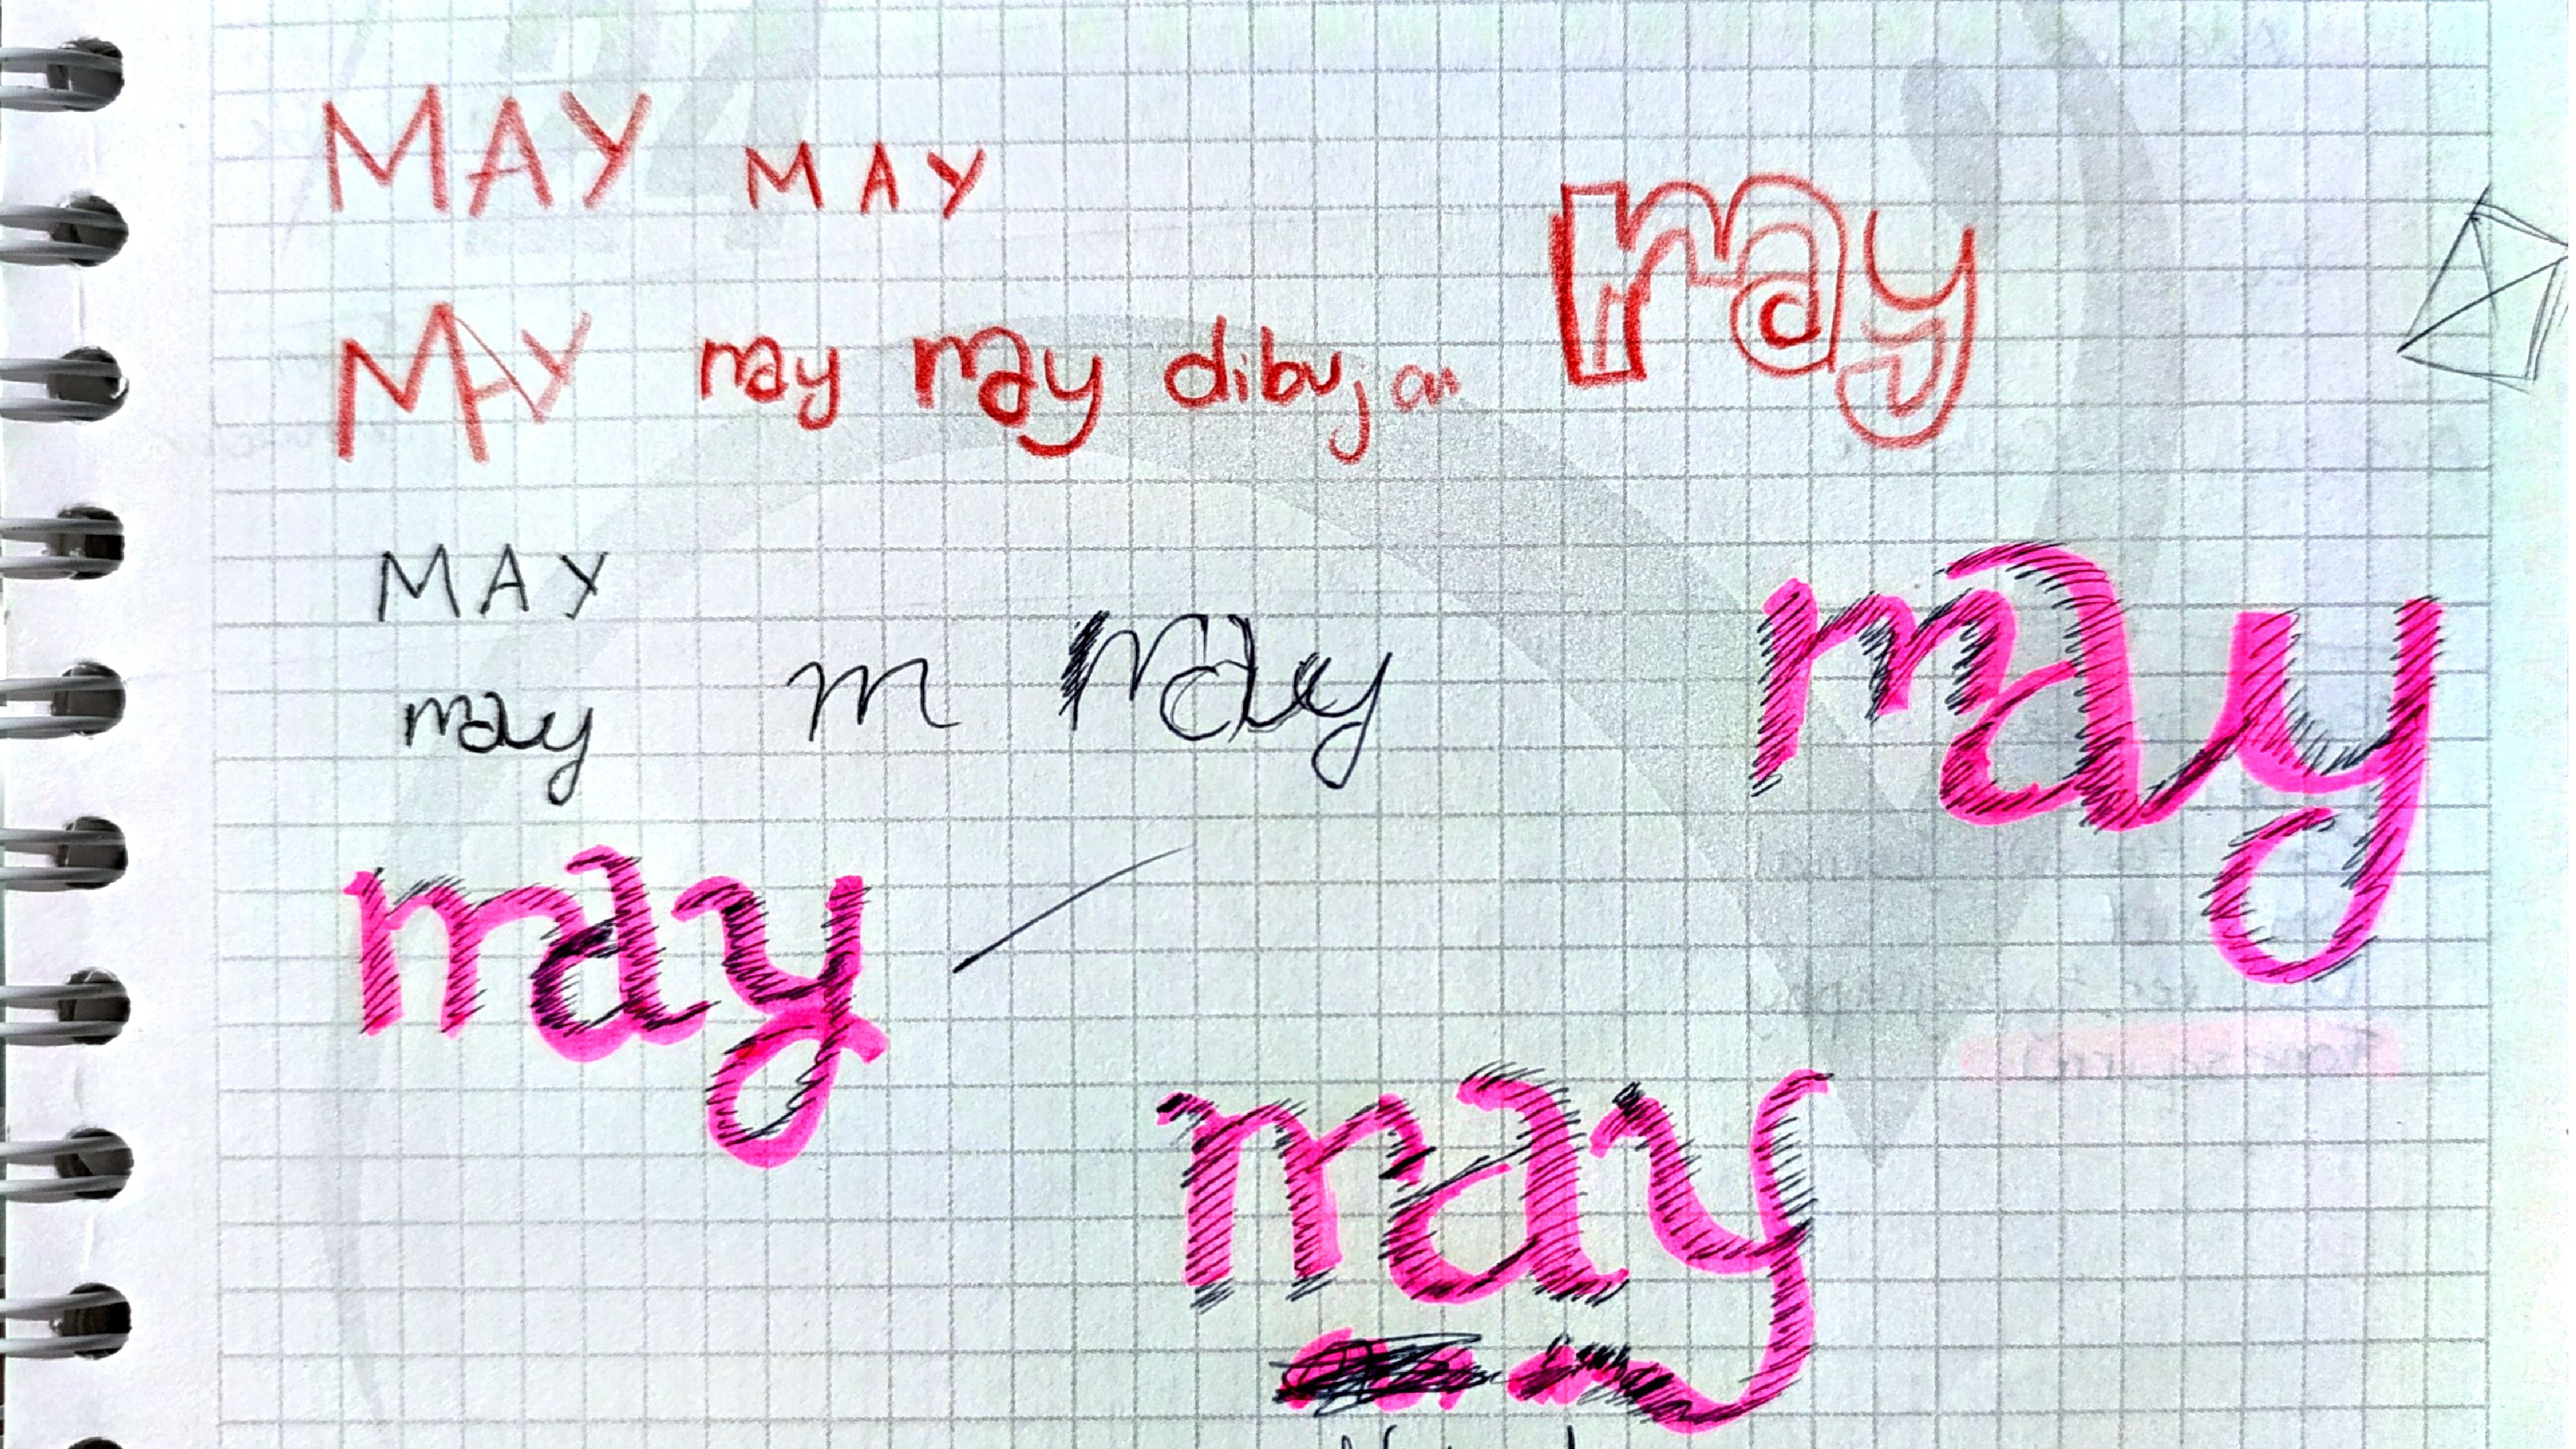 MAY MAY may
MAY may may dibujar
MAY
may m may may
may
may